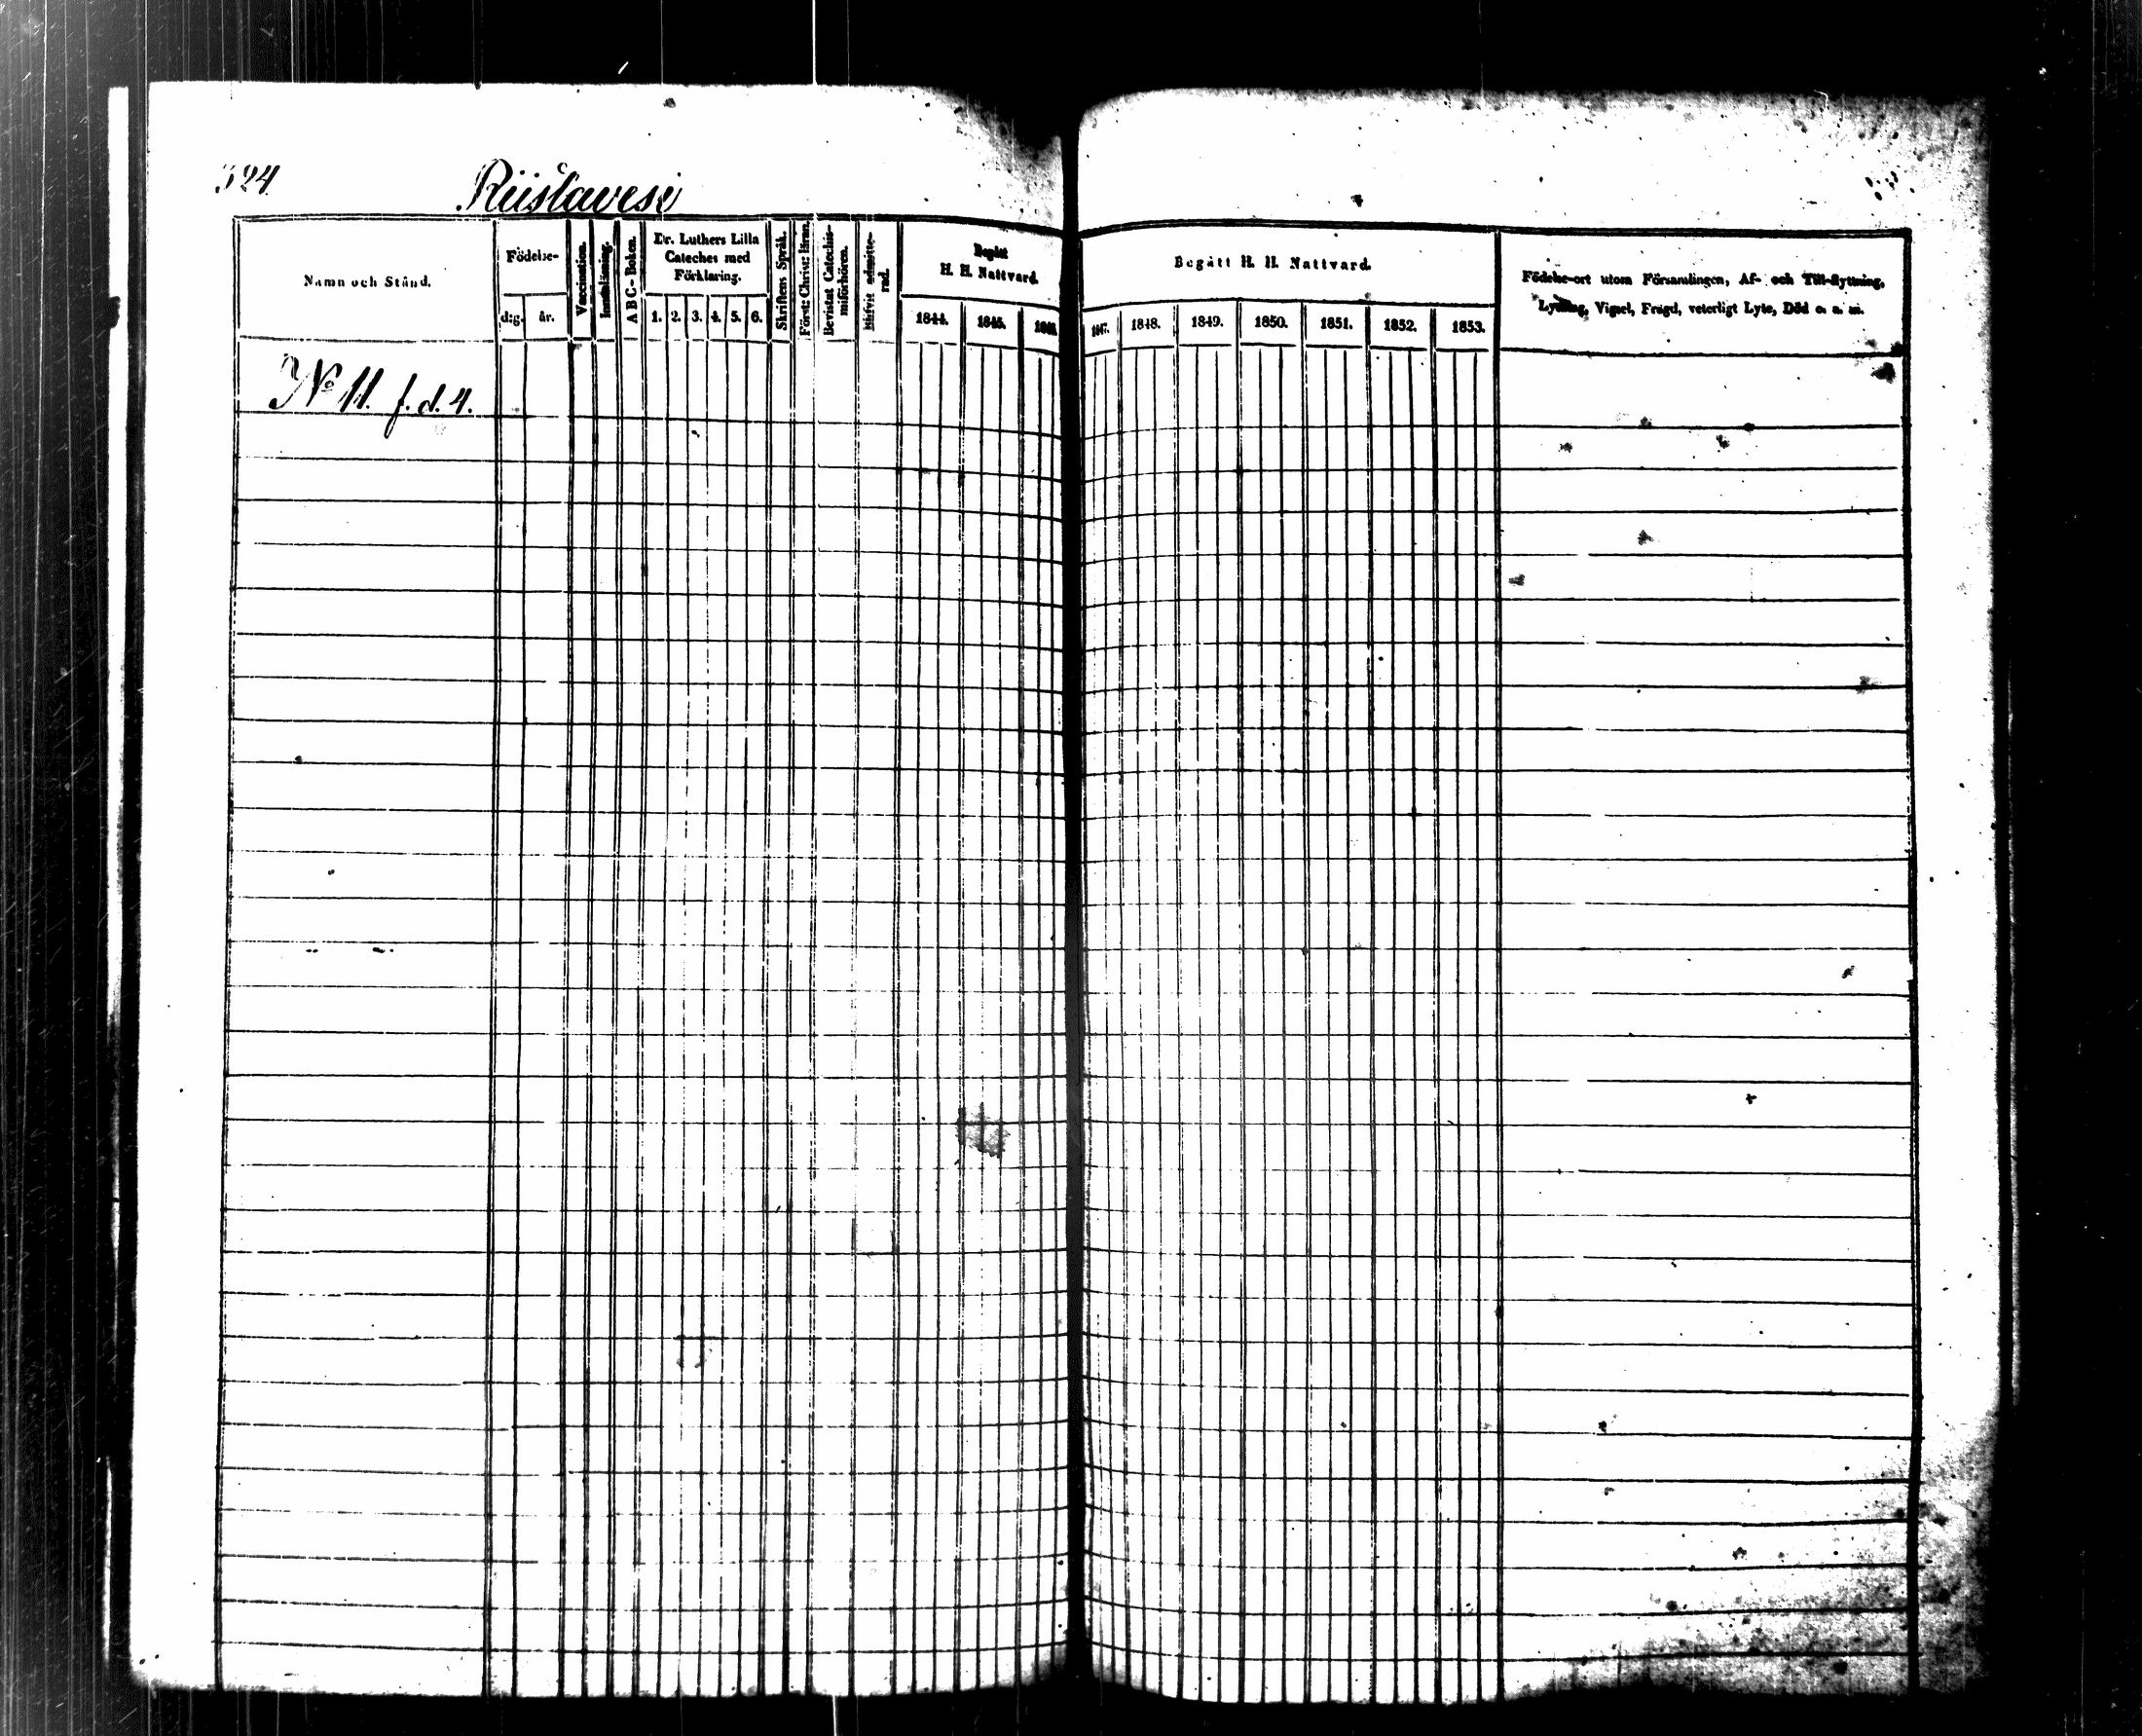 324.
Riistavesi
Namn och Stånd.
Födelse-
d:g.
år.
Vaccination.
Innanläsning.
A B C-Boken.
Dr. Luthers Lilla
Cateches med
Förklaring.
1. 2. 3. 4. 5. 6.
Skriftens Språk.
Först: Christ: Kran.
Bevistat Catechis-
miförhören.
Blifvit admitte-
rad.
Begått
H. H. Nattvard.
1844. 1845. 1846.
Begått H. H. Nattvard.
1847. 1848. 1849. 1850. 1851. 1852. 1853.
Födelse-ort utom Församlingen, Af- och Till-flyttning,
Lysning, Vigsel, Frägd, veterligt Lyte, Död o. s. m.
No 11. f. d. 4.